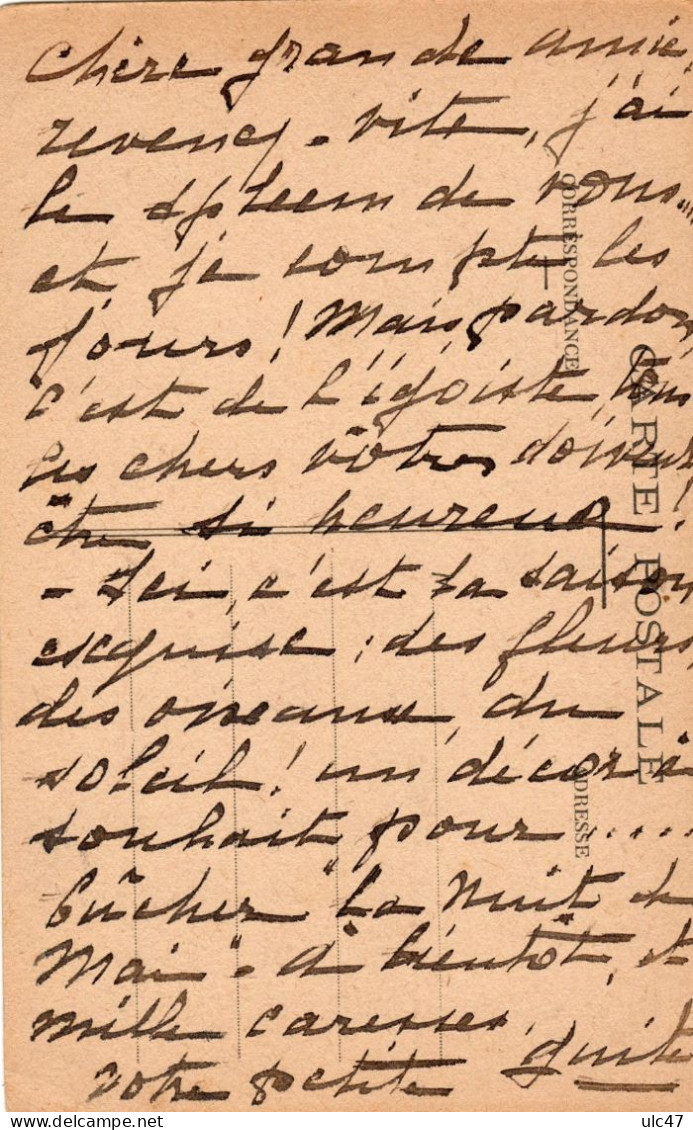 Chère grande amie,
revenez-vite, j'ai
le spleen de vous...
et je compte les
jours! Mais, pardon,
c'est de l'égoïste,
les chers vôtres doivent
être si heureux!
- Ici, c'est la saison
exquise : des fleurs,
des oiseaux, du
soleil! un décor à
souhait pour....
bûcher "La Nuit de
Mai" - à bientôt, et
mille caresses,
votre petite Guite
CORRESPONDANCE
CARTE POSTALE
ADRESSE
ulc47